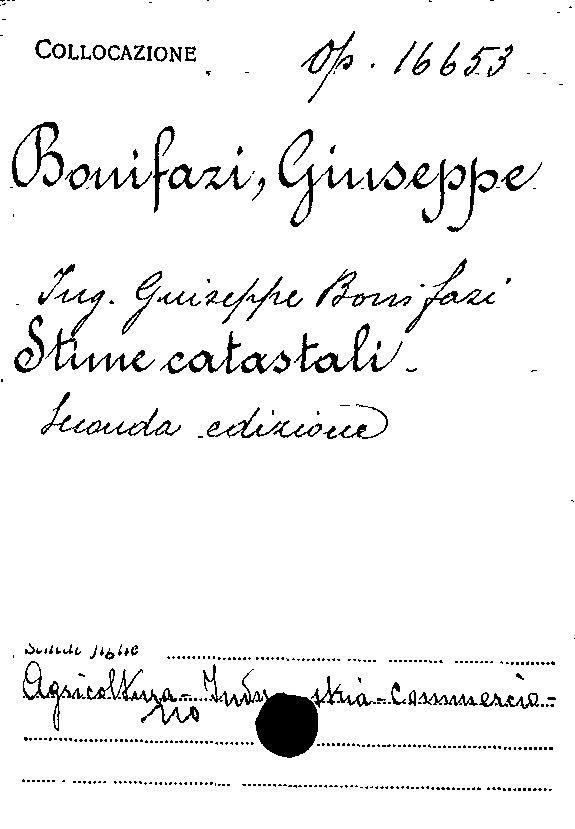 COLLOCAZIONE Op. 16653
Bonifazi, Giuseppe
Ing. Giuseppe Bonifazi
Stime catastali
Seconda edizione
Agricoltura - Indu stria - Commercio -